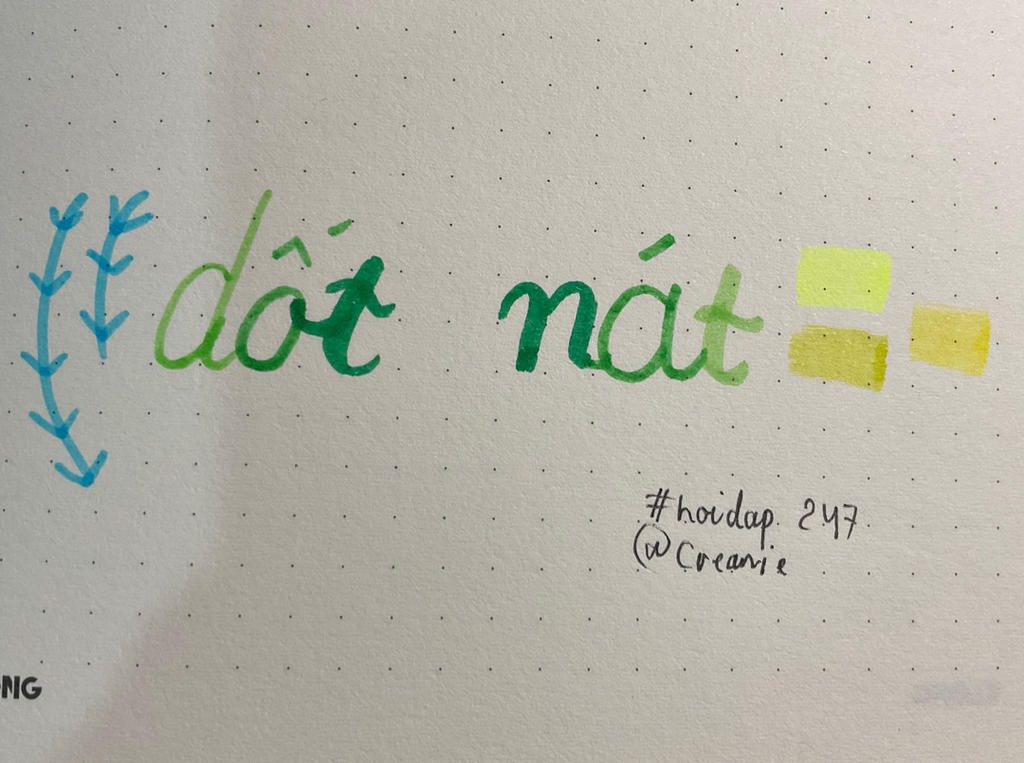 dốt nát
#hoidap 247
@Creamie
NG